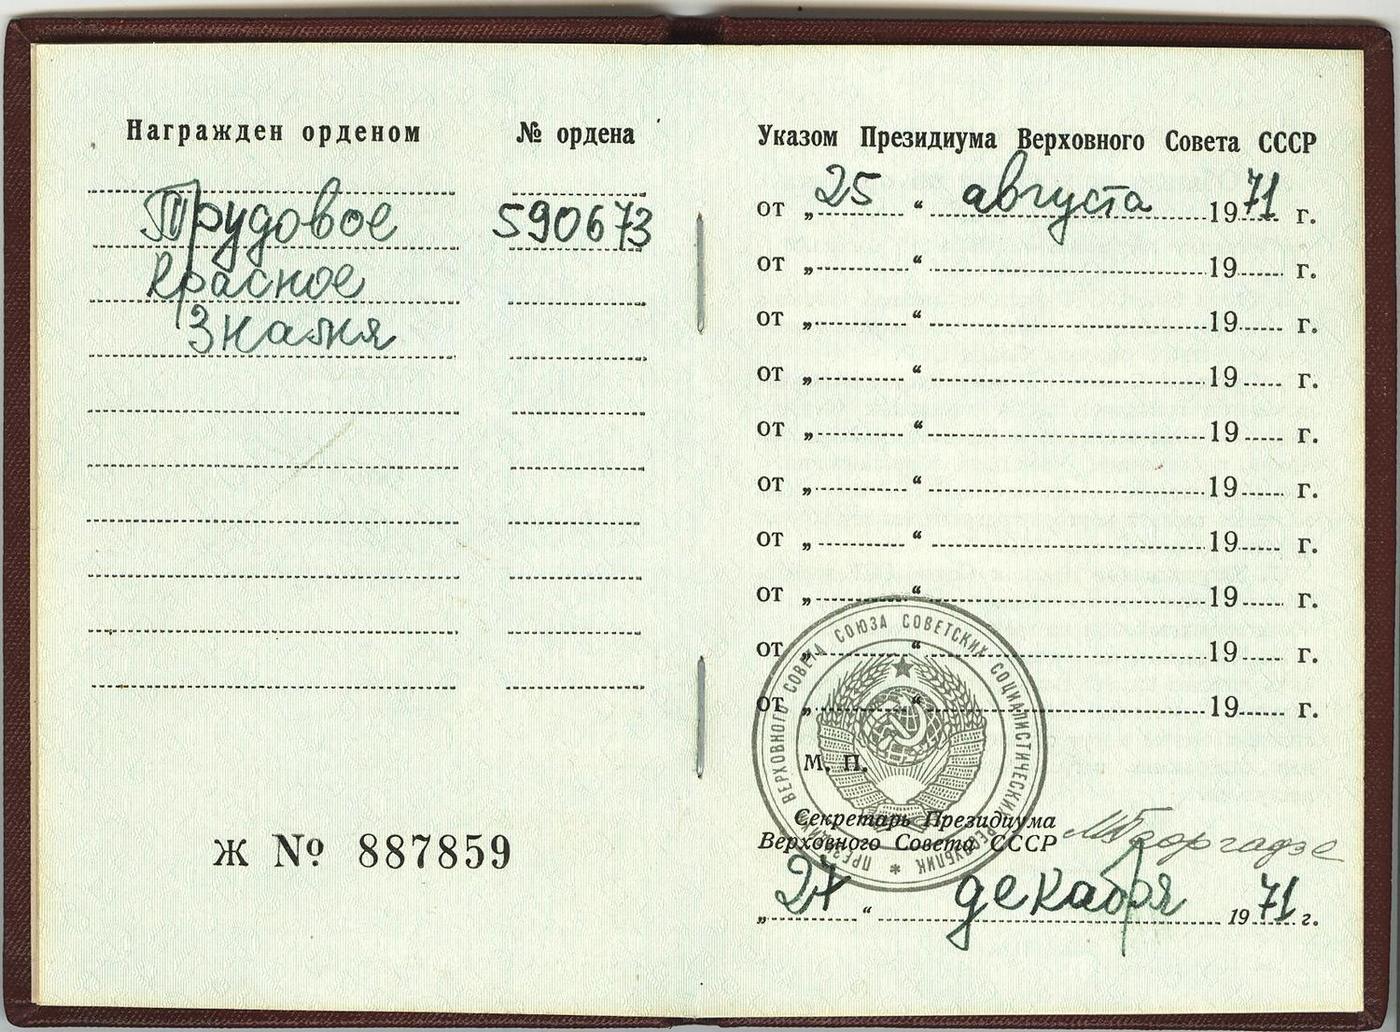 Награжден орденом № ордена
Трудовое 590673
Красное
Знамя
Ж № 887859
Указом Президиума Верховного Совета СССР
от „25“ августа 1971 г.
от „ “ 19 г.
от „ “ 19 г.
от „ “ 19 г.
от „ “ 19 г.
от „ “ 19 г.
от „ “ 19 г.
от „ “ 19 г.
от „ “ 19 г.
от „ “ 19 г.
ПРЕЗИДИУМ ВЕРХОВНОГО СОВЕТА СОЮЗА СОВЕТСКИХ СОЦИАЛИСТИЧЕСКИХ РЕСПУБЛИК *
М. П.
Секретарь Президиума
Верховного Совета СССР МГеоргадзе
„27“ декабря 1971 г.